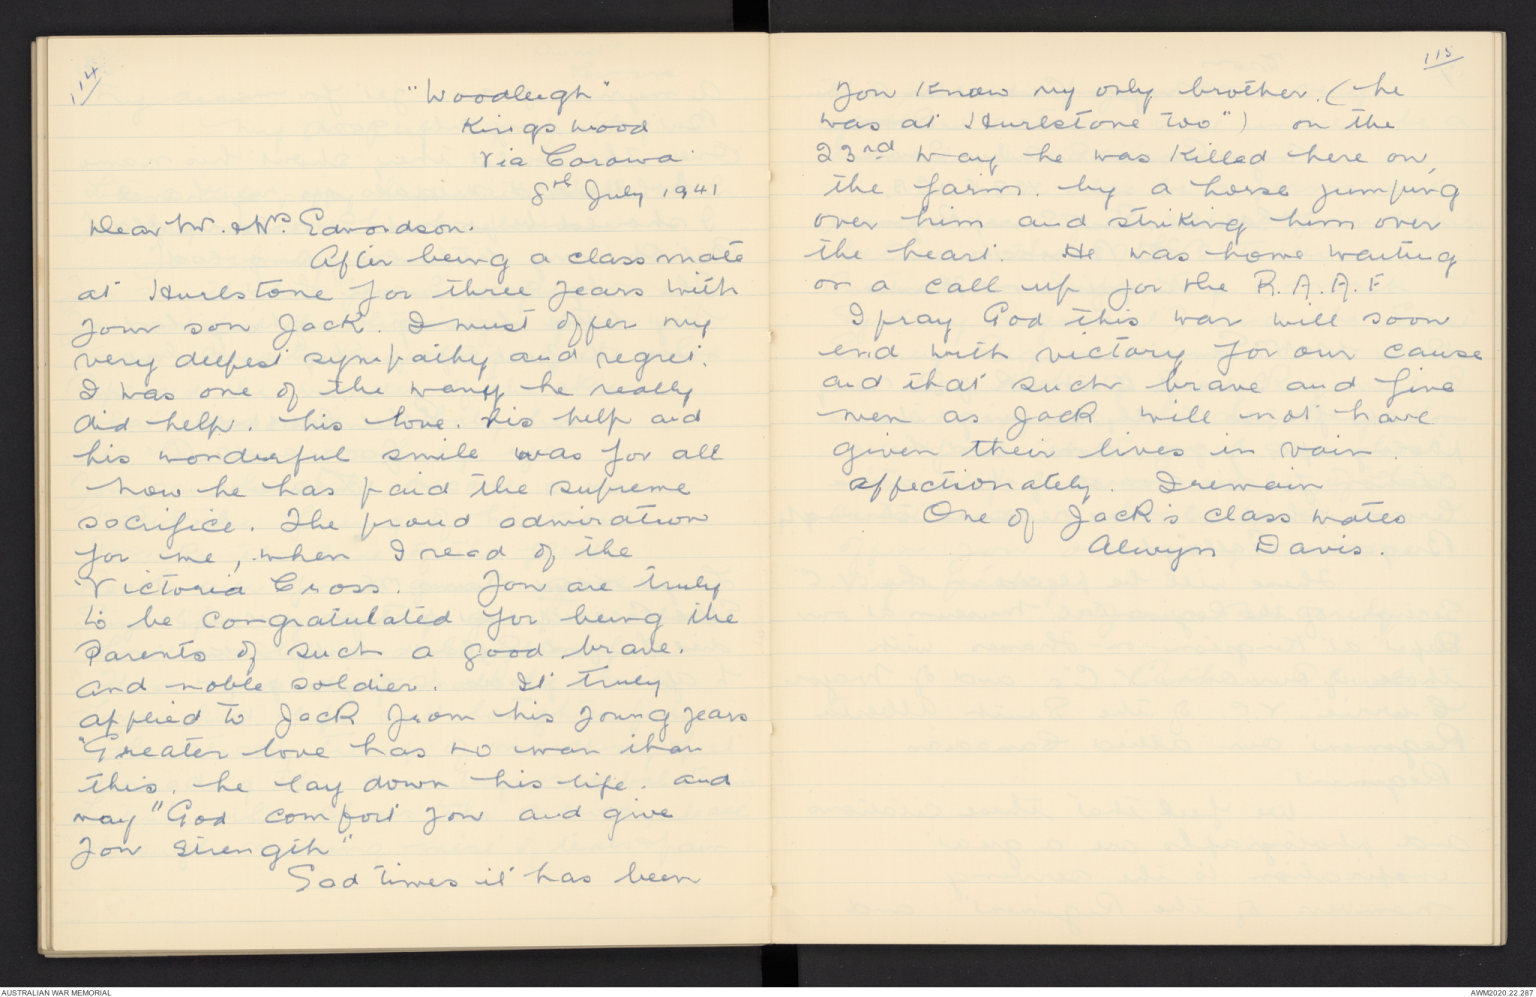 114
"Woodleigh"
Kingswood
Via Corowa
8th July 1941
Dear Mr. & Mrs. Edmondson.
After being a class mate
at Hurlstone for three years with
your son Jack. I must offer my
very deepest sympathy and regret.
I was one of the many he really
did help. his love. his help and
his wonderful smile was for all
now he has paid the supreme
sacrifice. The proud admiration
for me, when I read of the
Victoria Cross. You are truly
to be congratulated for being the
Parents of such a good brave.
and noble soldier. It truly
applied to Jack from his young years
"Greater love has no man than
this. he lay down his life. and
may "God comfort you and give
you strength"
Sad times it has been
115
You know my only brother. (he
was at Hurlstone too") on the
23rd May he was killed here on,
the farm. by a horse jumping
over him and striking him over
the heart. He was home waiting
on a call up for the R.A.A.F
I pray God this war will soon
end with victory for our cause
and that such brave and fine
men as Jack, will not have
given their lives in vain.
affectionately. I remain
One of Jack's class mates
Alwyn Davis.
AUSTRALIAN WAR MEMORIAL
AWM2020.22.287